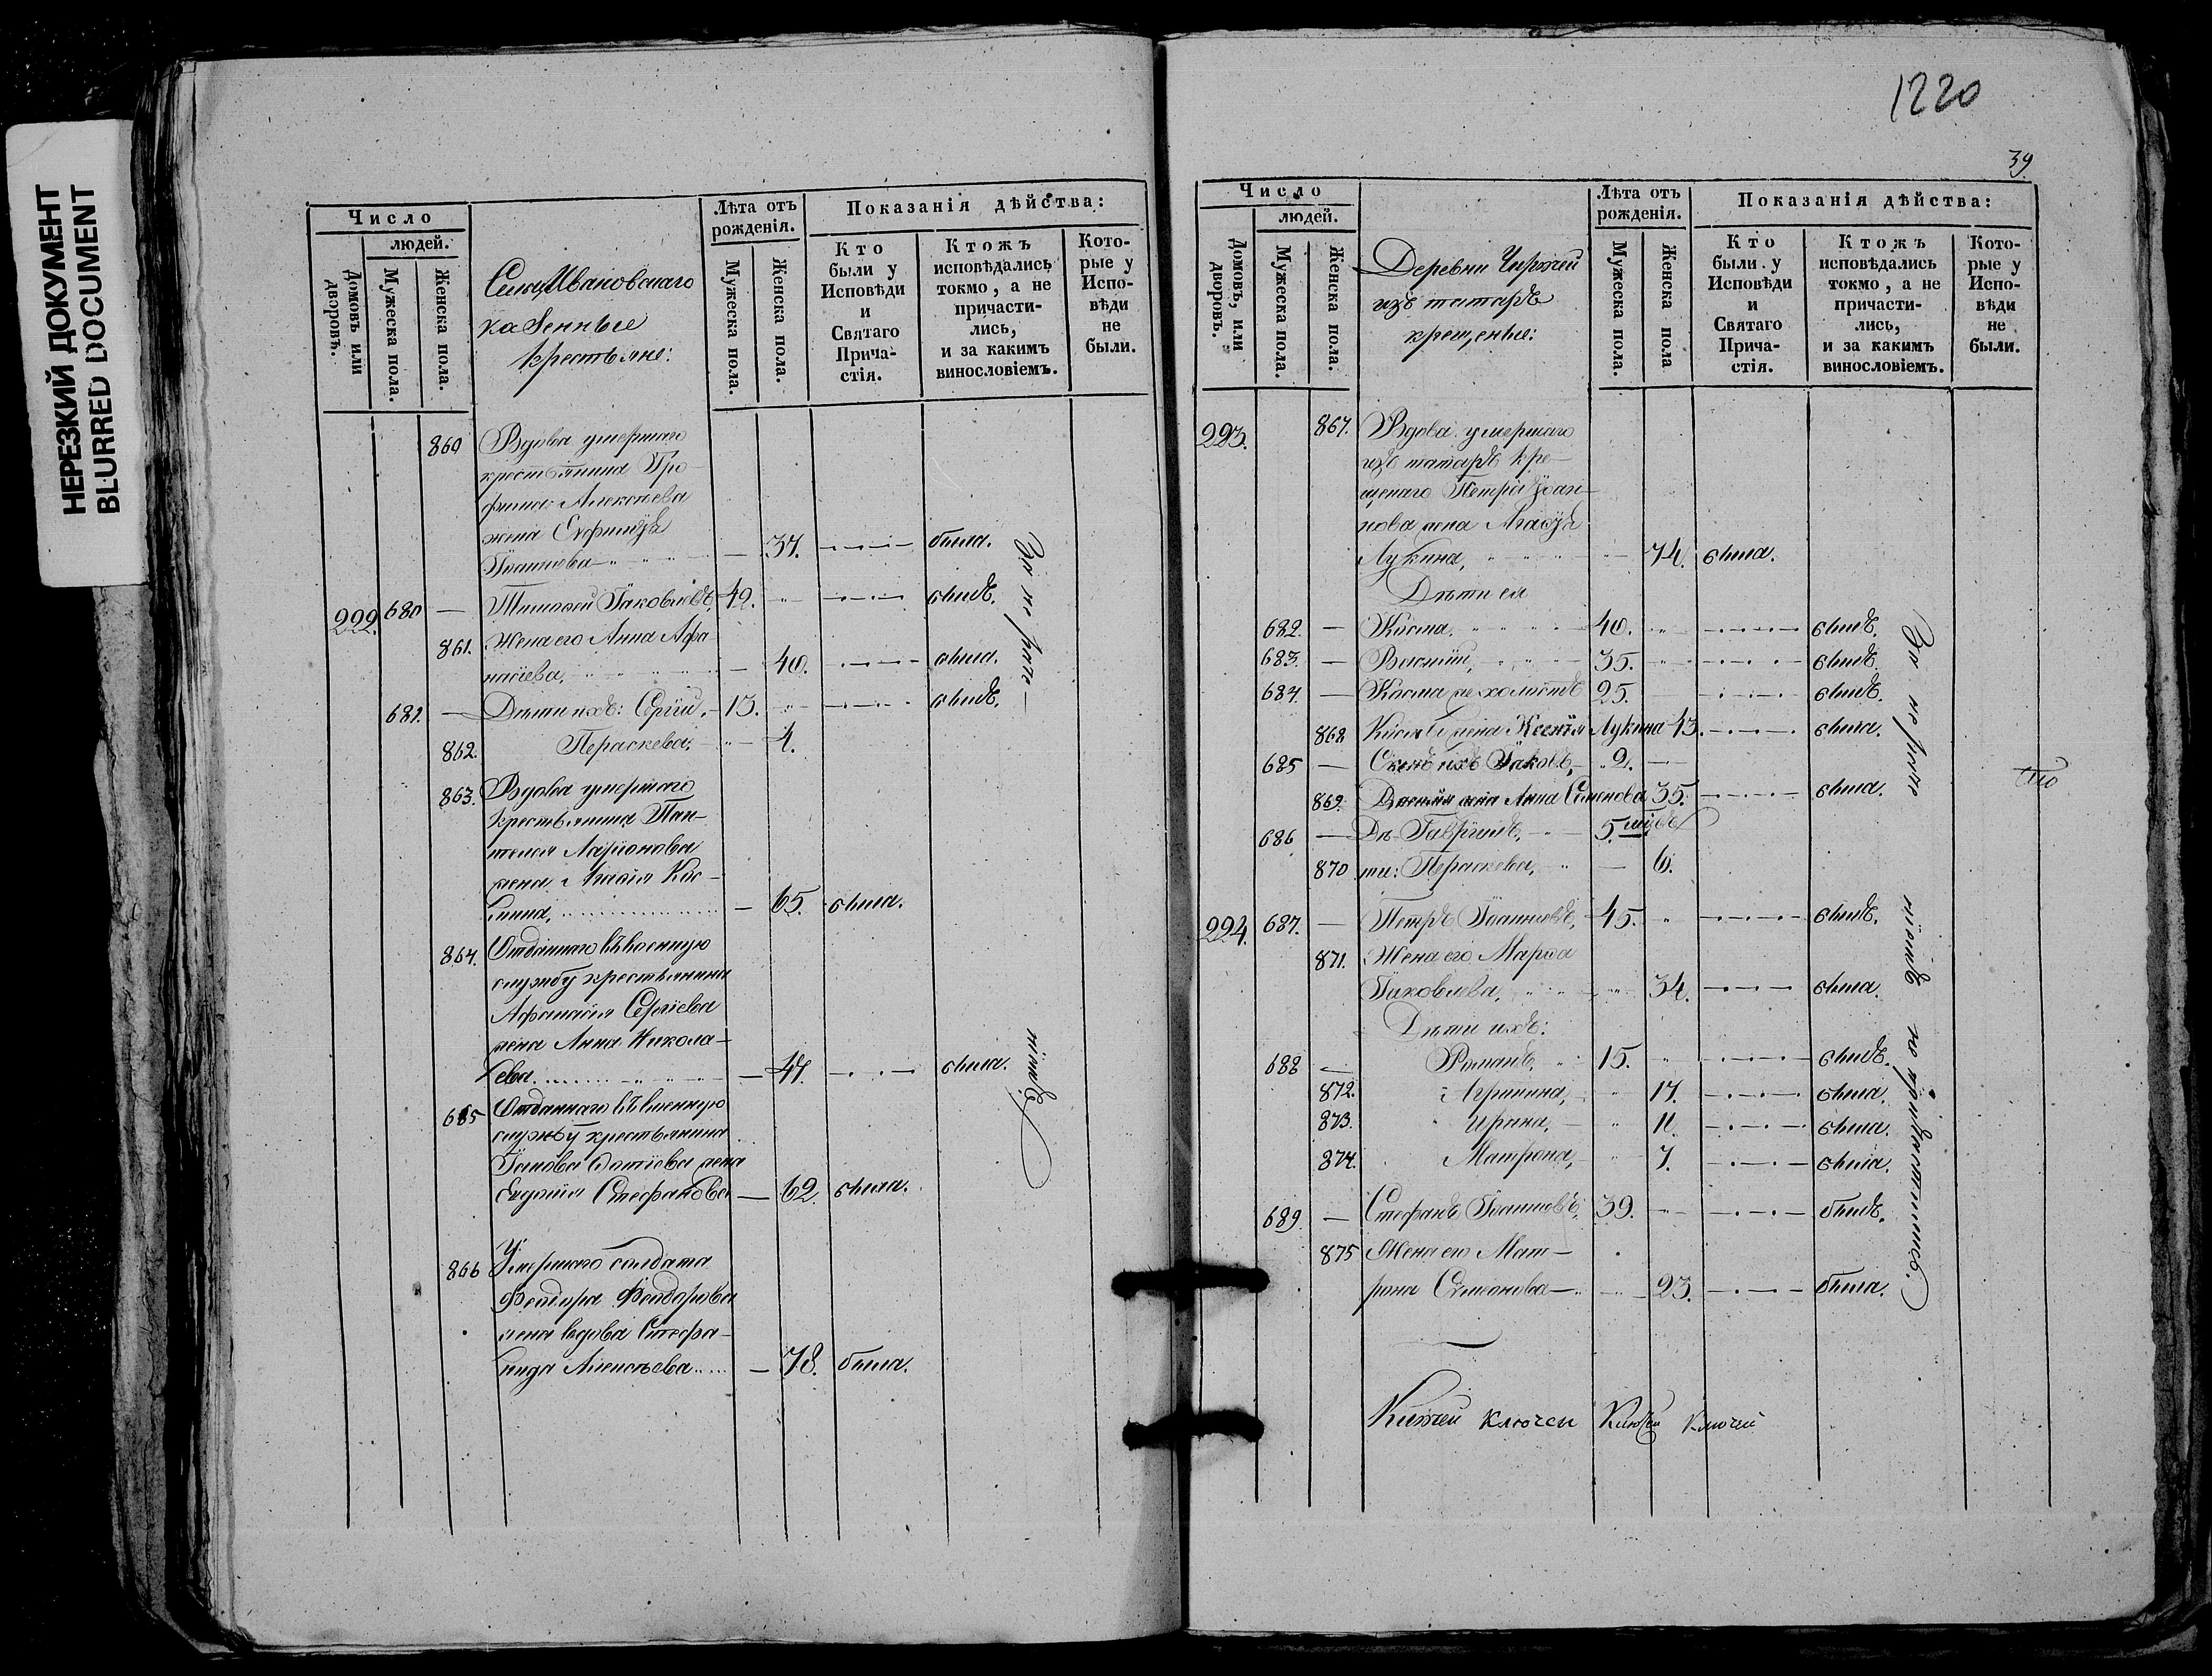 НЕРЕЗКИЙ ДОКУМЕНТ
BLURRED DOCUMENT
Число
людей.
Домовъ или дворовъ.
Мужеска пола.
Женска пола.
Села Ивановскаго
казенные
крестьяне:
Лѣта отъ рожденія.
Мужеска пола.
Женска пола.
Показанія дѣйства:
Кто были у Исповѣди и Святаго Прича-стія.
Ктожъ исповѣдались токмо, а не причасти-лись, и за какимъ винословіемъ.
Кото-рые у Испо-вѣди не были.
860 Вдова умершаго
крестьянина Тро-
фима Алексѣева
жена
Іоаннова — 37. была.
222. 680 — Тимофей Іаковлевъ, 42. былъ.
861. Жена его Анна Афа-
насіева, — 40. была.
681. — Дѣти ихъ: Сергій, 13. былъ.
862. Параскева, 4.
863. Вдова умершаго
крестьянина Пан-
телея Ларіонова
жена Агафія Кос-
мина, — 65. была.
864. Отданнаго въ военную
службу крестьянина
Афанасія Сергіева
жена Анна Никола-
ева — 47. была.
665 Отданнаго въ военную
службу крестьянина
Іакова жена
Евдокія Стефанова — 62. была.
866 Умершаго солдата
Феодора Феодорова
жена вдова Стефа-
нида Алексѣева — 78. была.
За не раче-
ніемъ
1220
39
Число
людей.
Домовъ, или дворовъ.
Мужеска пола.
Женска пола.
Деревни
изъ татаръ
крещеные:
Лѣта отъ рожденія.
Мужеска пола.
Женска пола
Показанія дѣйства:
Кто были у Исповѣди и Святаго Прича-стія.
Ктожъ исповѣдались токмо, а не причасти-лись, и за какимъ винословіемъ.
Кото-рые у Испо-вѣди не были.
223. 867. Вдова умершаго
изъ татаръ кре-
щенаго Петра Іоан-
нова жена
Лукина, — 74. была.
Дѣти ея
682. — Косма, 40. былъ.
683. — Василій, 35. былъ.
684. — Косма холостъ 25. былъ.
868 Космы жена Ксенія Лукина 43. была.
685 — Сынъ ихъ Іаковъ, 2.
869. Василія жена Анна Семенова 35. была.
686 — Дѣ- Гавріилъ, 5.
870 ти: Параскева, — 6.
224. 687. — Петръ Іоанновъ, 45. былъ.
871. Жена его Марфа
Іаковлева, 34. была.
Дѣти ихъ:
688 — Романъ, 15. былъ.
872. Агрипина, 17. была.
873. Ирина, 11. была.
874. Матрона, 7. была.
689. — Стефанъ Іоанновъ, 39. былъ.
875 Жена его Мат-
рона Симеонова — 23. была.
За не раче-
ніемъ не пріобщились.
ключеи Ключеи Ключеи